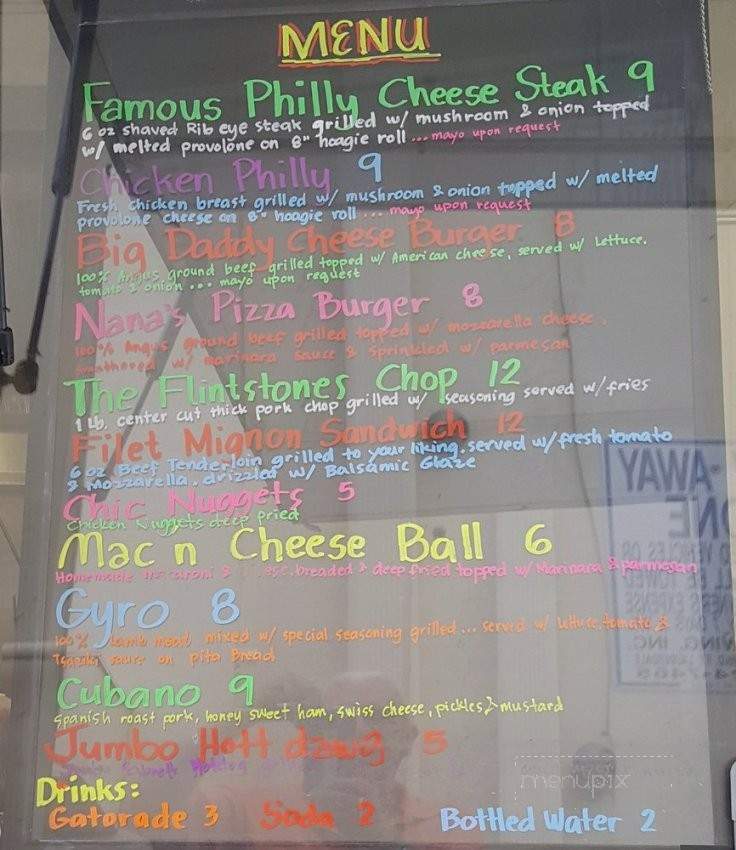 MENU
Famous Philly Cheese Steak 9
6 oz shaved Rib eye steak grilled w/ mushroom & onion topped
w/ melted provolone on 8" hoagie roll ... mayo upon request
Chicken Philly 9
Fresh chicken breast grilled w/ mushroom & onion topped w/ melted
provolone cheese on 8" hoagie roll ... mayo upon request
Big Daddy Cheese Burger 8
100% Angus ground beef grilled topped w/ American cheese, served w/ Lettuce,
tomato & onion ... mayo upon request
Nana's Pizza Burger 8
100% Angus ground beef grilled topped w/ mozzarella cheese,
smothered w/ marinara sauce & sprinkled w/ parmesan
The Flintstones Chop 12
1 Lb. center cut thick pork chop grilled w/ seasoning served w/ fries
Filet Mignon Sandwich 12
6 oz Beef Tenderloin grilled to your liking, served w/ fresh tomato
& Mozzarella, drizzled w/ Balsamic Glaze
Chic Nuggets 5
Chicken Nuggets deep fried
Mac n Cheese Ball 6
Homemade macaroni & breaded & deep fried topped w/ Marinara & parmesan
Gyro 8
100% Lamb meat mixed w/ special seasoning grilled ... served w/ lettuce, tomato &
Tzaziki sauce on pita Bread
Cubano 9
Spanish roast pork, honey sweet ham, swiss cheese, pickles, & mustard
Jumbo Hott dawg 5
Drinks:
Gatorade 3 Soda 2 Bottled Water 2
menupix